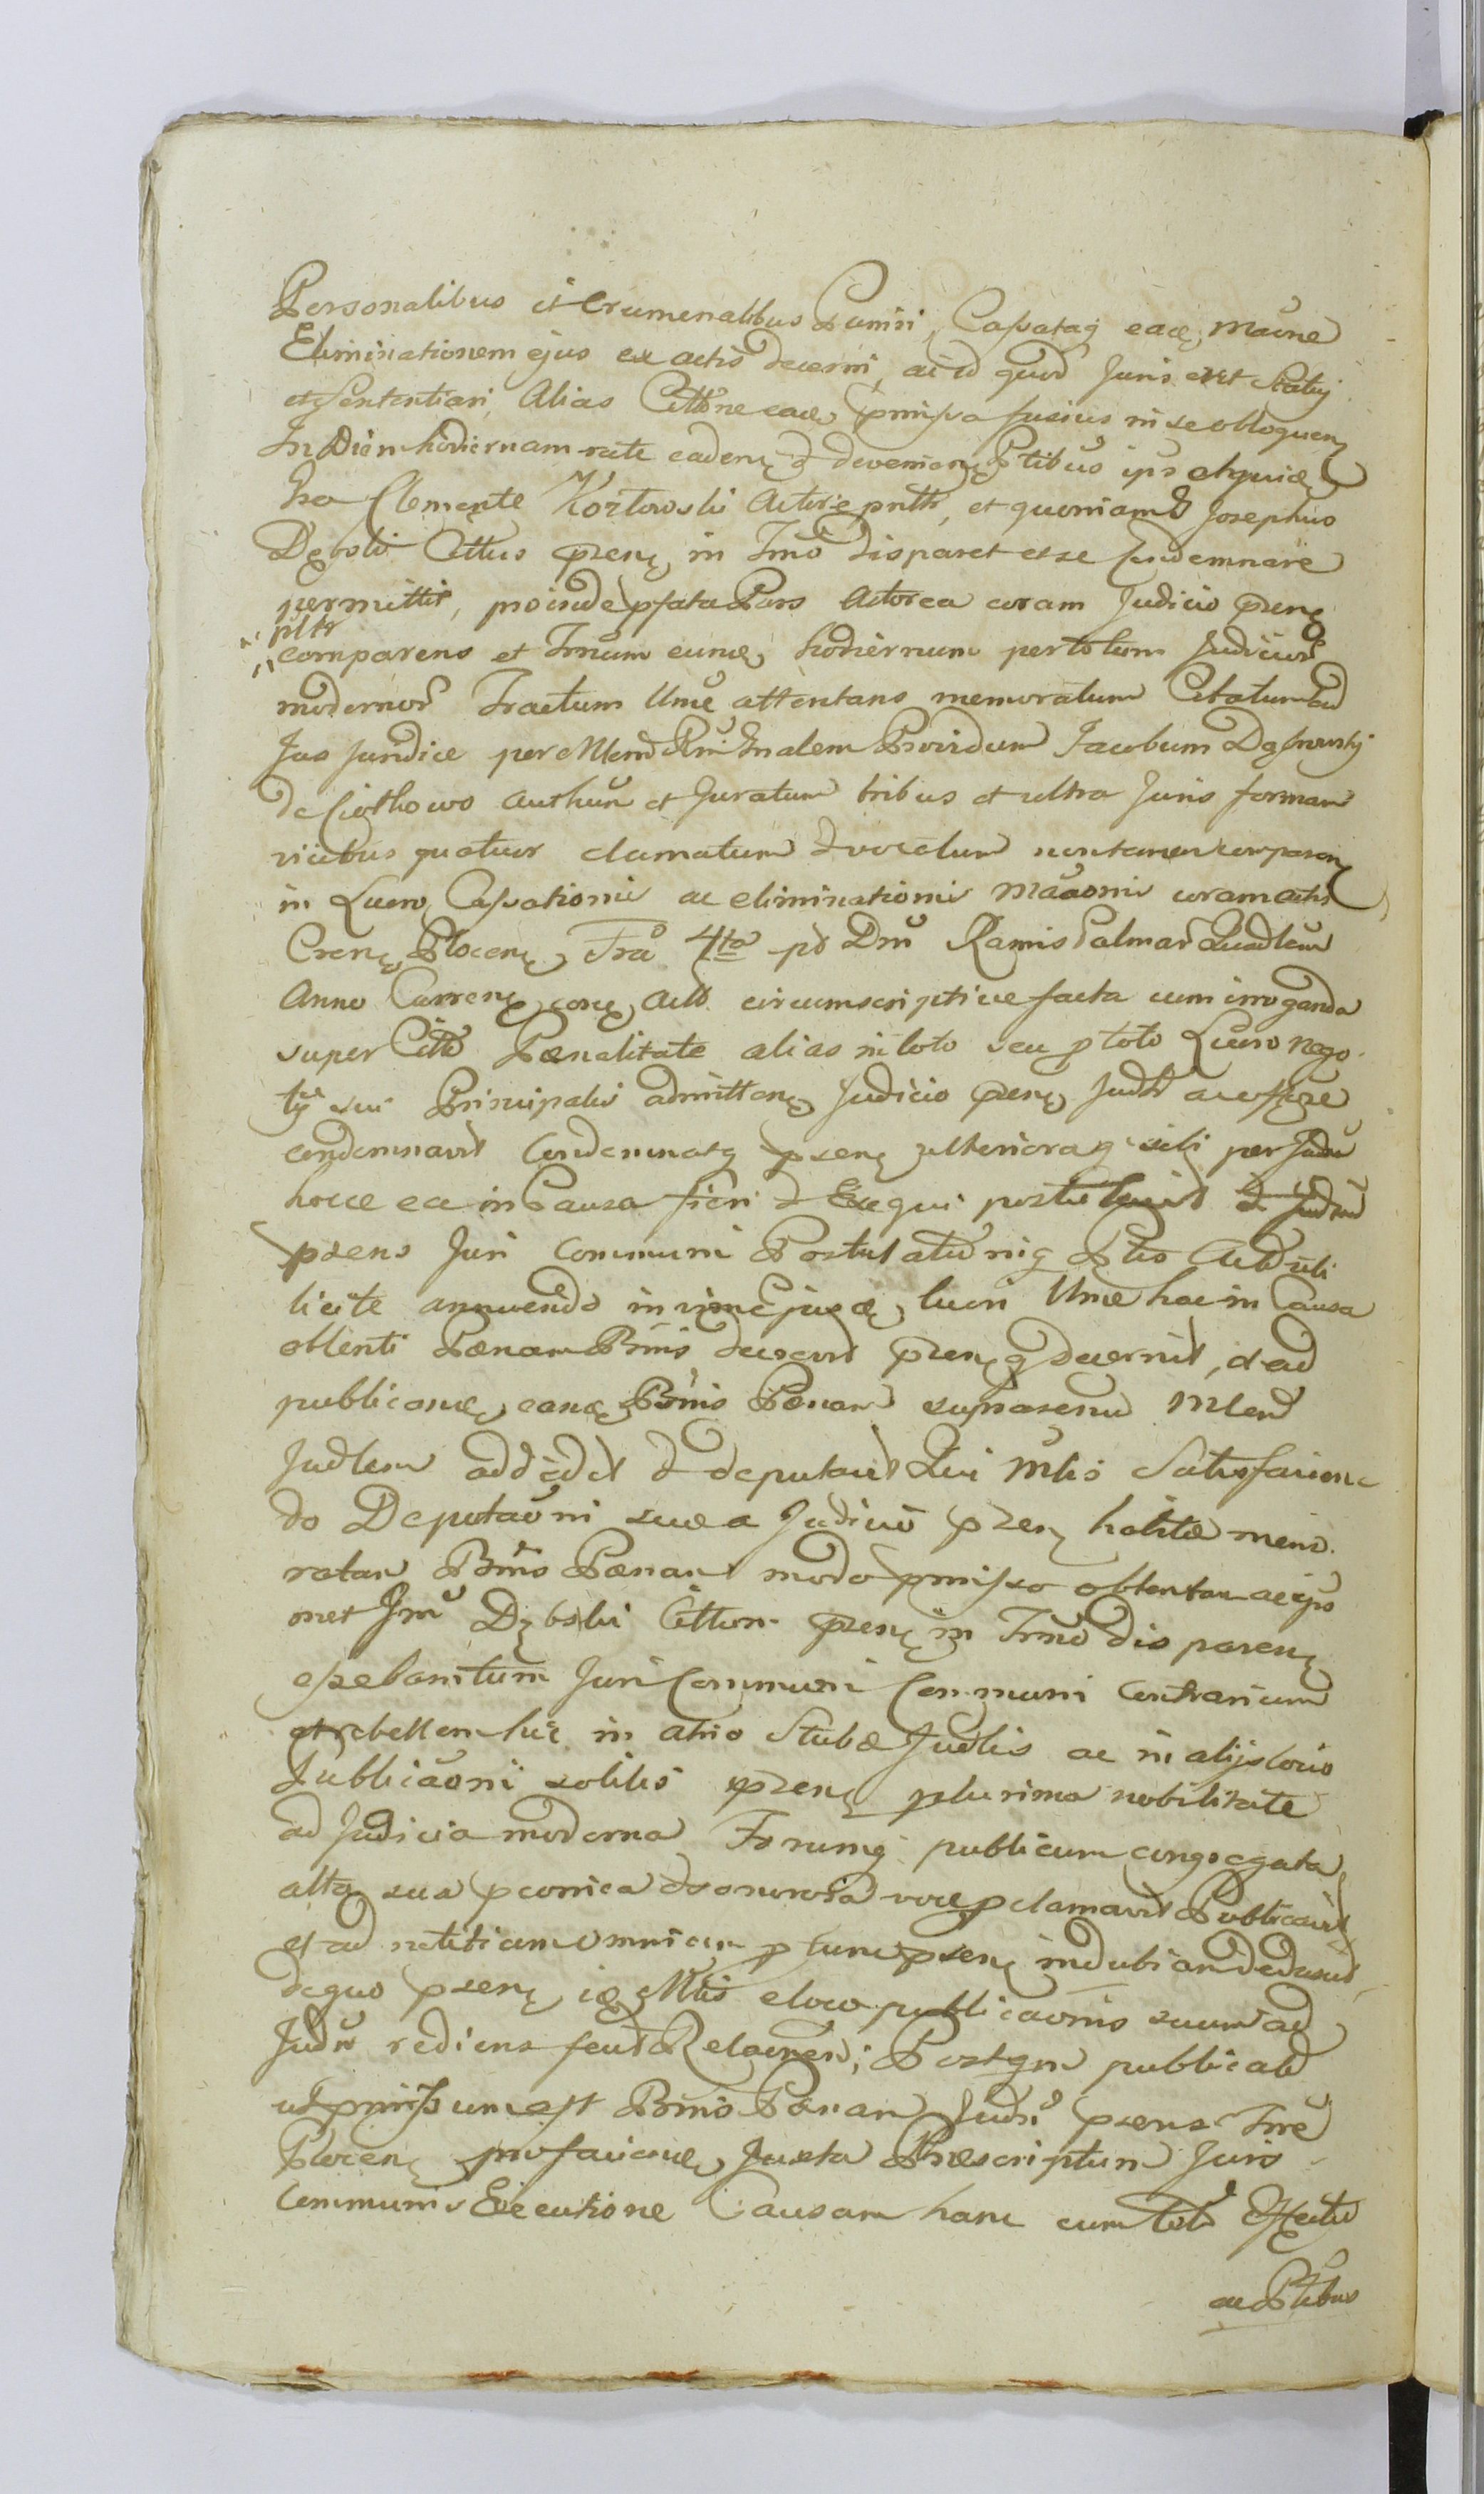 Personalibus et Crumenalibus Puniri, Cassatāq eāce, Māne
Eliminationem ejus ex actis decerni, ac id quod Juris erit Statuj
et Sententiari, Alias Cittōne eāce, pmissa fusius in se obloquen
In Diem hodiernam rite caden & devenien Ptibus ipō
Gso Clemente Kozłowski Actore pntti, et quoniam G Josephus
Dębski Cittus pzen, in Tmō disparet et se Condemnare
permittit, proinde pfata Pars Actorea coram Judicio pzen
pltr
comparens et Tmum eunce, hodiernum per totum Judiciorū
modernorū Tractum Ume attentans memoratum Citatum ad
Jus juridice per Mtend Rni Gnalem Providum Jacobum
de Authum et Juratum tribus et ultra Juris formam
vicibus quatuor clamatum & vocatum non tamen comparen
in Lucro, Cassationis ac eliminationis coram actis
Cren, Plocen, Fra 4ta pō Dm̄ Ramis Palmar
Anno Curren, conc, Actō circumscriptive facta cum irroganda
super Cittō Pœnalitate alias in toto seu p toto Lucro nego
tij sui Principalis admitten, Judicio pzen, Judtr
condemnavit Condemnatq pzen ulterioraq sibi per Judm
hocce ea in Causa fieri & Exequi postulavit & Judm
pzens Juri Communi Postulationiq Ptis Actō uti
licite annuendo in vim Ejusce, lucri Ume hac in Causa
obtenti Pœnam Bnis, decrevit pzenq decernit, et ad
publicance, eance, Bnis Pœnam suprasenu Mtend
Judlem addidit & deputavit Qui Mtis Satisfacien
do Deputaōni suæ a Judicio pzen habitæ memo
ratam Bnis Pœnam modo pmisso obtentam ac ips
met Jmu Dębski Cittum pzen in Tmō disparen
esse banitum Juri Communi Communi Contrarium
et rebellem hic in atrio Stubæ Judlis ac in alijs locis
Publicaōni solitis pzen plurima nobilitate
ad Judicia moderna Forumq publicum congregata,
alta sua pconica & sonorosa voce pclamavit Publicavit
et ad notitiam Omnium p tunc pzen indubiam deduxit
de quo pzen, Mtis e loco publicaōnis suum ad
Judm rediens fecit Relaōnem; Postqm publicatā
ut pmissum est Bnis Pœnam Judm pzens Tre
Plocen, pro facience, Juxta Præscriptum Juris
Communis Executione Causam hanc cum toto Effectu
ac Ptibus